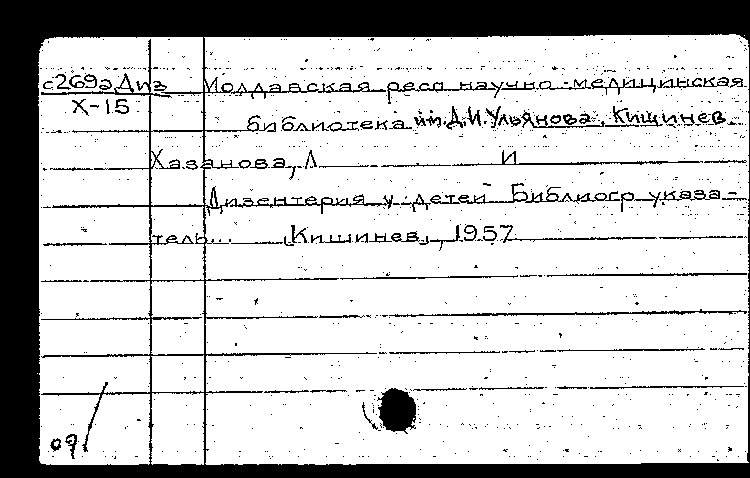 с269а,Диз Молдавская респ научно-медицинская
Х-15
библиотека им.Д.И.Ульянова, Кишинев.
Хазанова, Л И
Дизентерия у детей Библиогр указа-
тель... [Кишинев], 1957
09/